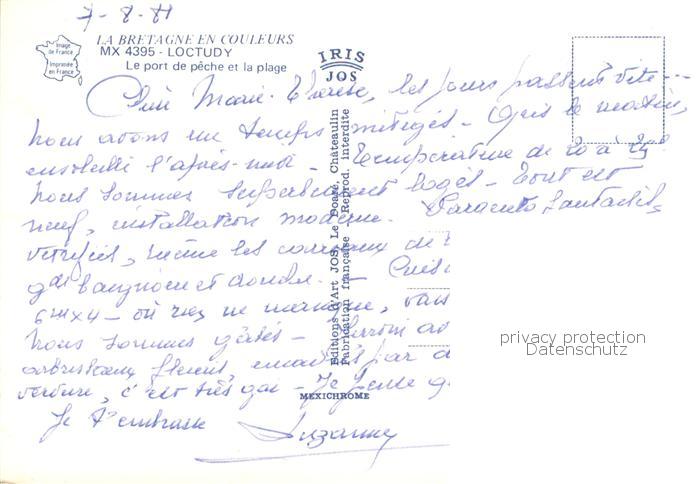 7-8-81
LA BRETAGNE EN COULEURS
MX 4395 - LOCTUDY
Le port de pêche et la plage
Image de France
Imprimée en France
IRIS
JOS
Chère Marie-Thérèse, les jours passent vite ---
nous avons un temps mitigés - Gris le matin,
ensoleillé l'après-midi - Température de 20 à 25°
Nous sommes superbement logés - Tout est
neuf, installation moderne.
vitrifiés, même les carreaux de
gde baignoire et douche. - Cuis
6m x 4 - où rien ne manque,
Nous sommes gâtés -
arbustes fleuris, par
verdure, c'est très gai - Je pense
Je t'embrasse Suzanne
Editions d'Art JOS, Le Doaré, Châteaulin
Fabrication française - Reprod. interdite
MEXICHROME
privacy protection
Datenschutz